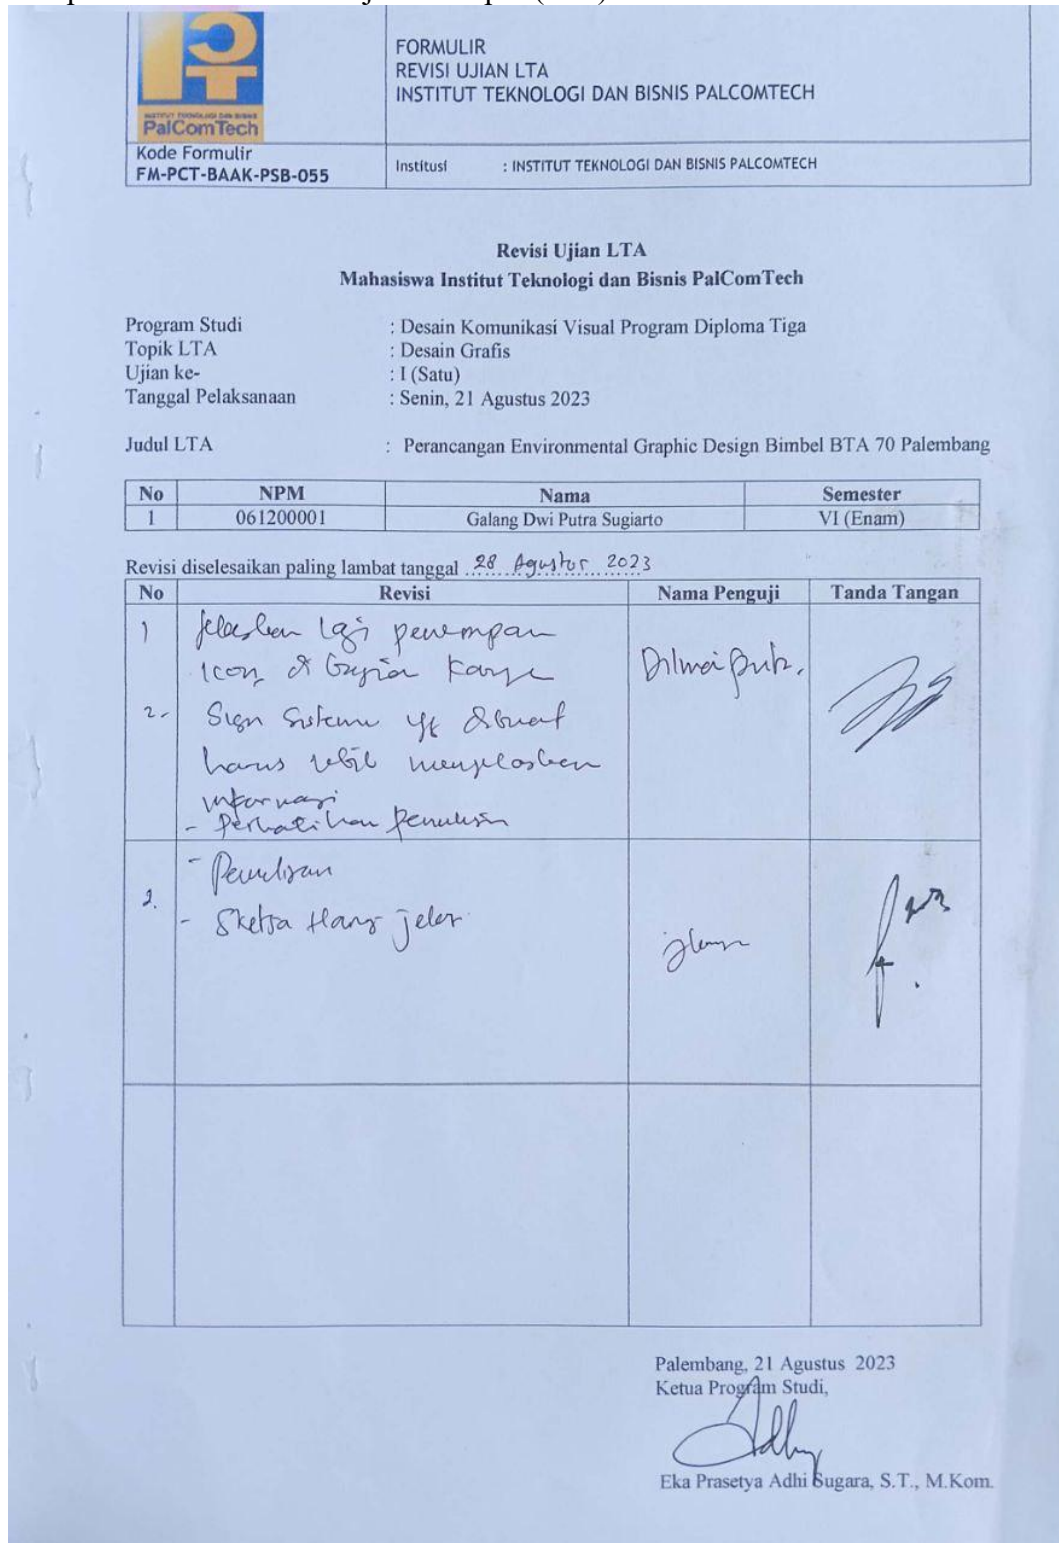 FORMULIR
REVISI UJIAN LTA
INSTITUT TEKNOLOGI DAN BISNIS PALCOMTECH
INSTITUT TEKNOLOGI DAN BISNIS
PalComTech
Kode Formulir
FM-PCT-BAAK-PSB-055
Institusi : INSTITUT TEKNOLOGI DAN BISNIS PALCOMTECH
Revisi Ujian LTA
Mahasiswa Institut Teknologi dan Bisnis PalComTech
Program Studi : Desain Komunikasi Visual Program Diploma Tiga
Topik LTA : Desain Grafis
Ujian ke- : I (Satu)
Tanggal Pelaksanaan : Senin, 21 Agustus 2023
Judul LTA : Perancangan Environmental Graphic Design Bimbel BTA 70 Palembang
No NPM Nama Semester
1 061200001 Galang Dwi Putra Sugiarto VI (Enam)
Revisi diselesaikan paling lambat tanggal 28 Agustus 2023
No Revisi Nama Penguji Tanda Tangan
1 Jelaskan lagi
icon, karya
2. Sign Sistem yg dibuat
harus lebih menjelaskan
informasi
- Perhatikan penulisan
2. - Penulisan
- Sketsa Harus jelas
Palembang, 21 Agustus 2023
Ketua Program Studi,
Eka Prasetya Adhi Sugara, S.T., M.Kom.